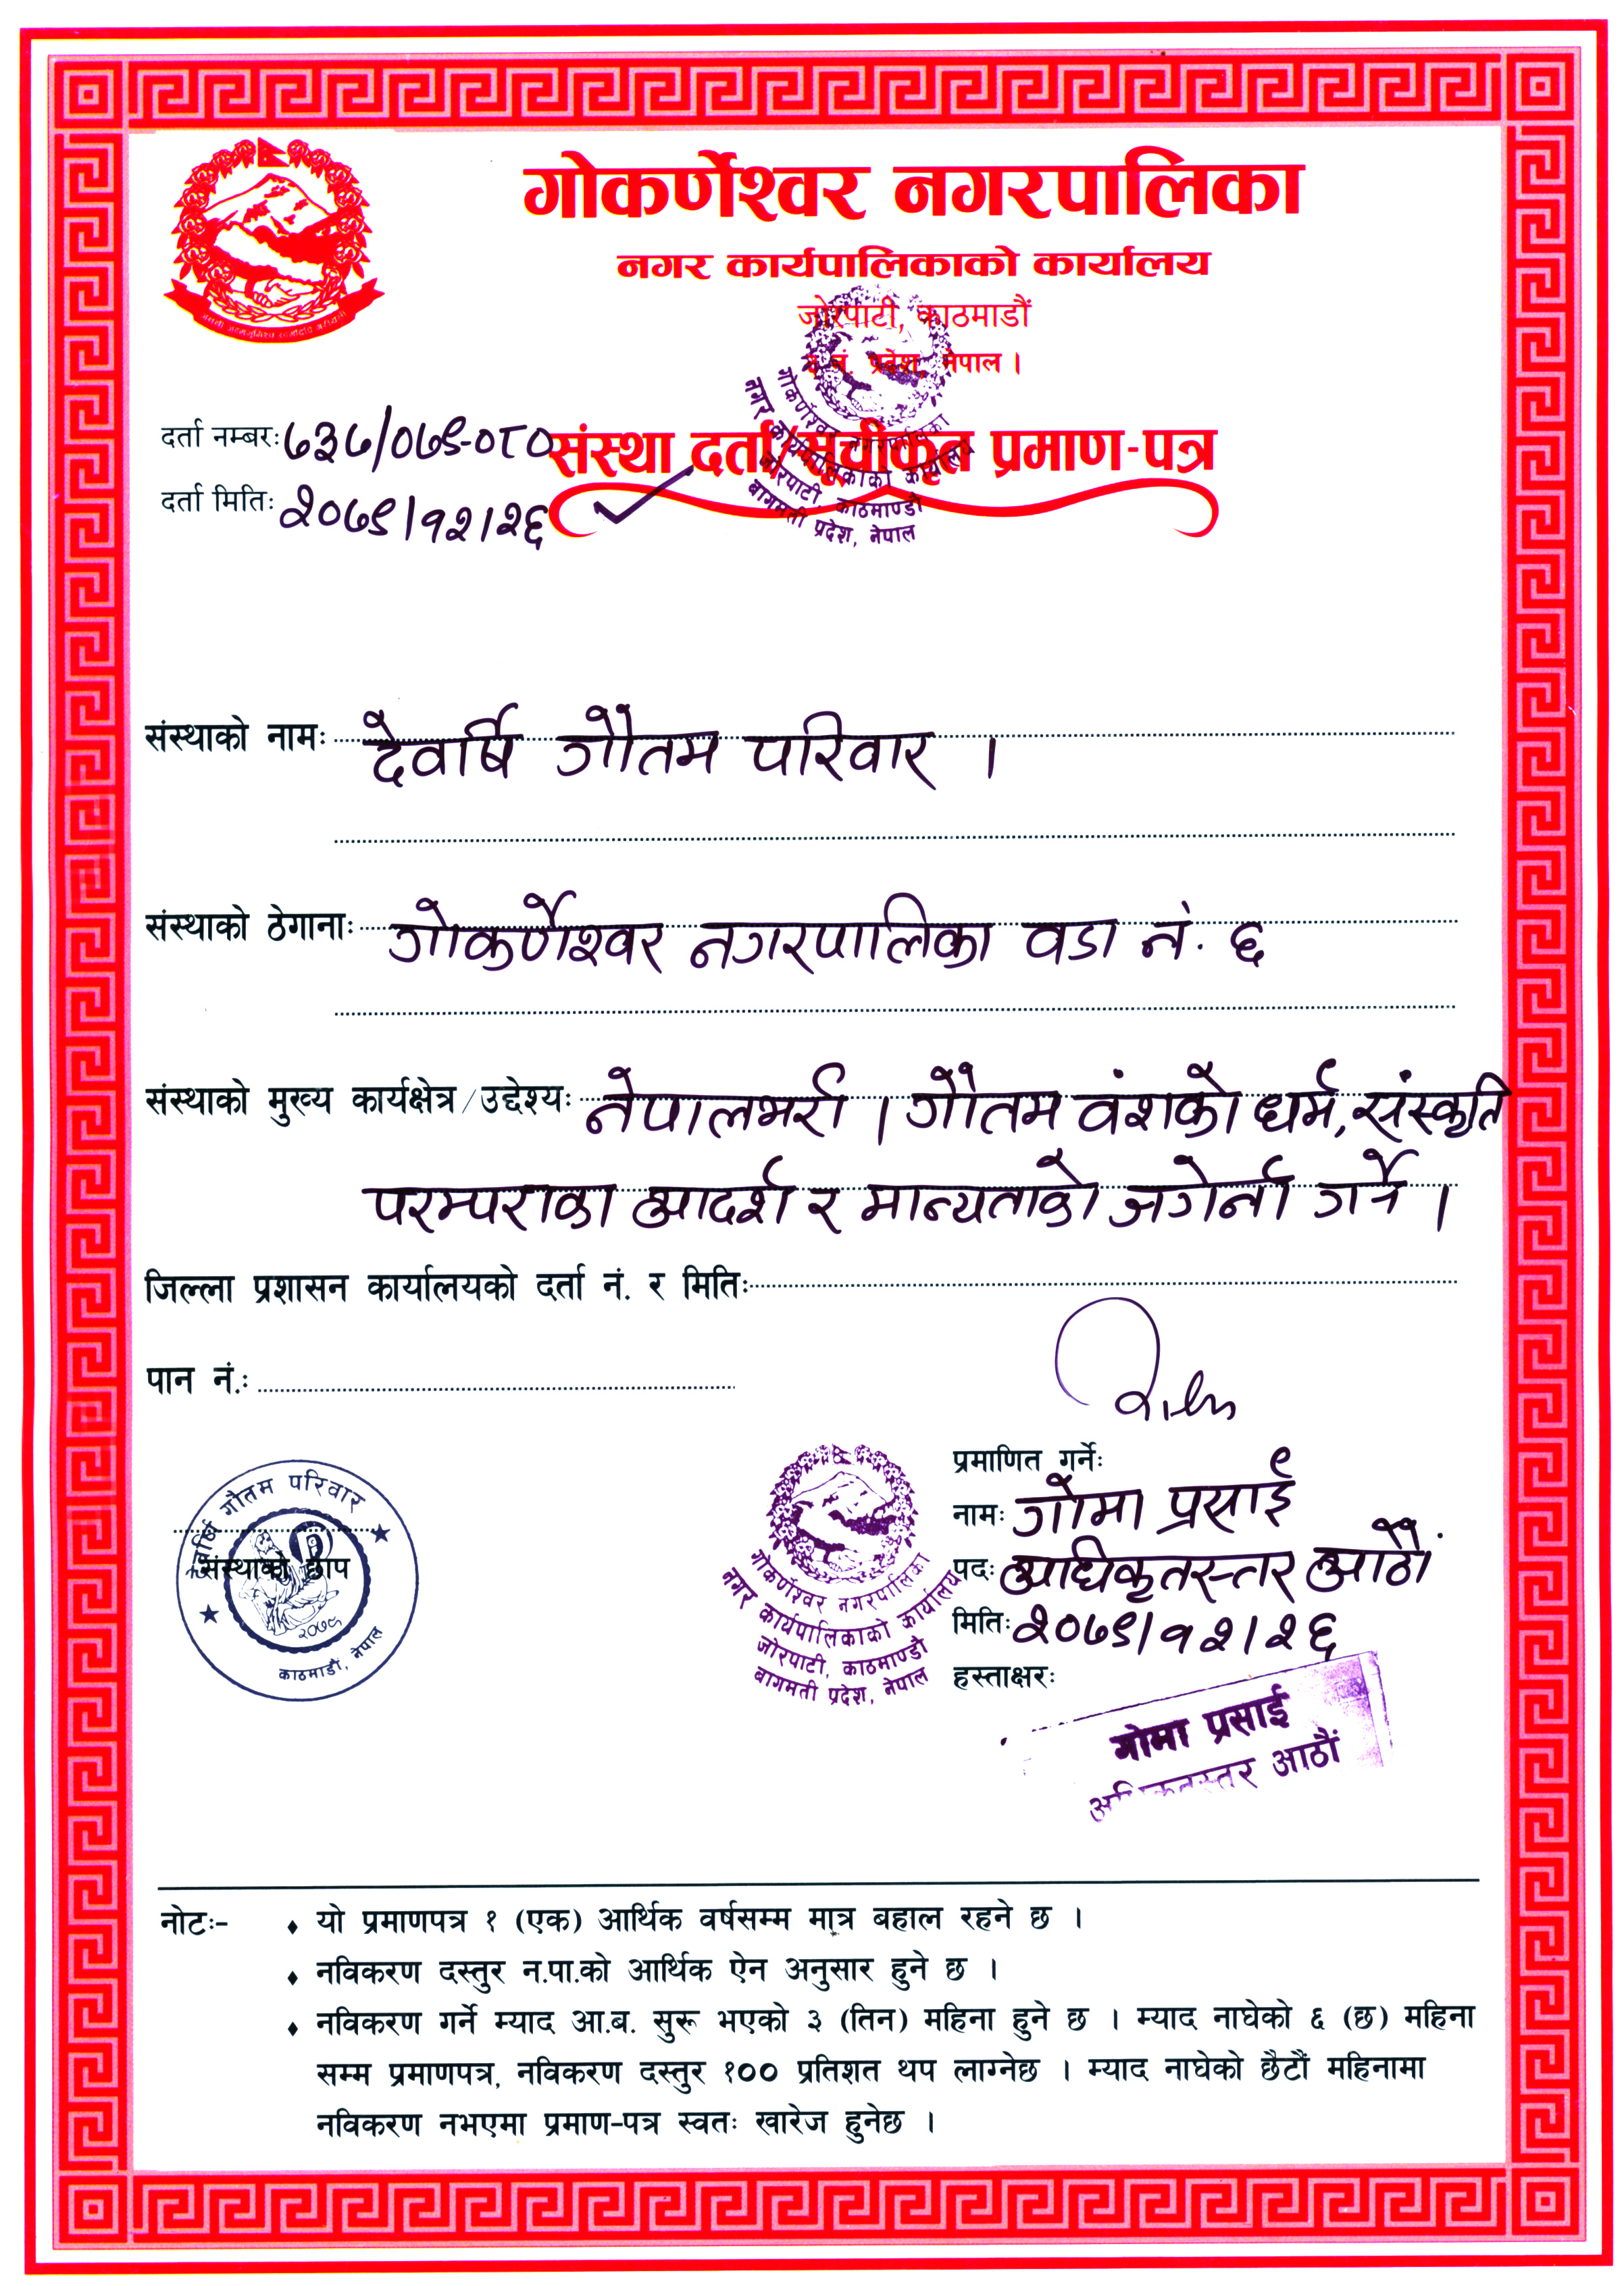 गोकर्णेश्वर नगरपालिका
नगर कार्यपालिकाको कार्यालय
जोरपाटी, काठमाडौं
३ नं. प्रदेश, नेपाल ।
गोकर्णेश्वर नगरपालिका
नगर कार्यपालिकाको कार्यालय
जोरपाटी, काठमाण्डौ
बागमती प्रदेश, नेपाल
दर्ता नम्बरः ७३७/०७९-०८०
संस्था दर्ता/सूचीकृत प्रमाण-पत्र
दर्ता मितिः २०७९/१२/२६
संस्थाको नामः देवर्षि गौतम परिवार ।
संस्थाको ठेगानाः गोकर्णेश्वर नगरपालिका वडा नं. ६
संस्थाको मुख्य कार्यक्षेत्र/उद्देश्यः नेपालभरी । गौतम वंशको धर्म, संस्कृति
परम्पराका आदर्श र मान्यताको जगेर्ना गर्ने ।
जिल्ला प्रशासन कार्यालयको दर्ता नं. र मितिः
पान नं.:
देवर्षि गौतम परिवार
संस्थाको छाप
२०७९
काठमाडौं, नेपाल
गोकर्णेश्वर नगरपालिका
नगर कार्यपालिकाको कार्यालय
जोरपाटी, काठमाण्डौ
बागमती प्रदेश, नेपाल
प्रमाणित गर्नेः
नामः गोमा प्रसाई
पदः अधिकृतस्तर आठौं
मितिः २०७९/१२/२६
हस्ताक्षरः
गोमा प्रसाई
अधिकृतस्तर आठौं
नोटः-
♦ यो प्रमाणपत्र १ (एक) आर्थिक वर्षसम्म मात्र बहाल रहने छ ।
♦ नविकरण दस्तुर न.पा.को आर्थिक ऐन अनुसार हुने छ ।
♦ नविकरण गर्ने म्याद आ.ब. सुरू भएको ३ (तिन) महिना हुने छ । म्याद नाघेको ६ (छ) महिना
सम्म प्रमाणपत्र, नविकरण दस्तुर १०० प्रतिशत थप लाग्नेछ । म्याद नाघेको छैटौं महिनामा
नविकरण नभएमा प्रमाण-पत्र स्वतः खारेज हुनेछ ।